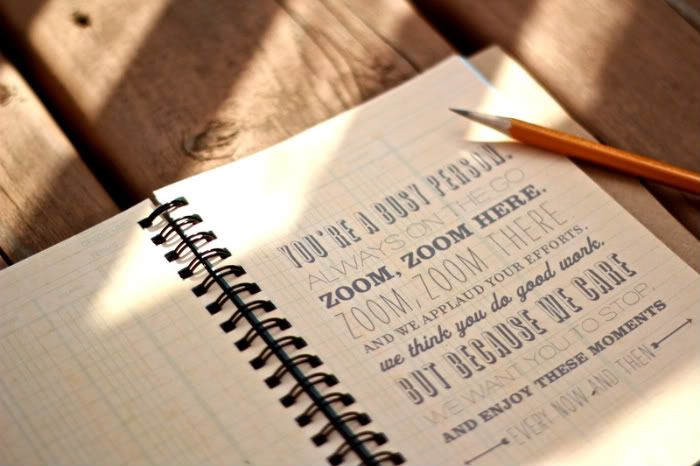 YOU'RE A BUSY PERSON.
ALWAYS ON THE GO
ZOOM, ZOOM HERE.
ZOOM, ZOOM THERE
AND WE APPLAUD YOUR EFFORTS.
we think you do good work.
BUT BECAUSE WE CARE
WE WANT YOU TO STOP,
AND ENJOY THESE MOMENTS
EVERY NOW AND THEN